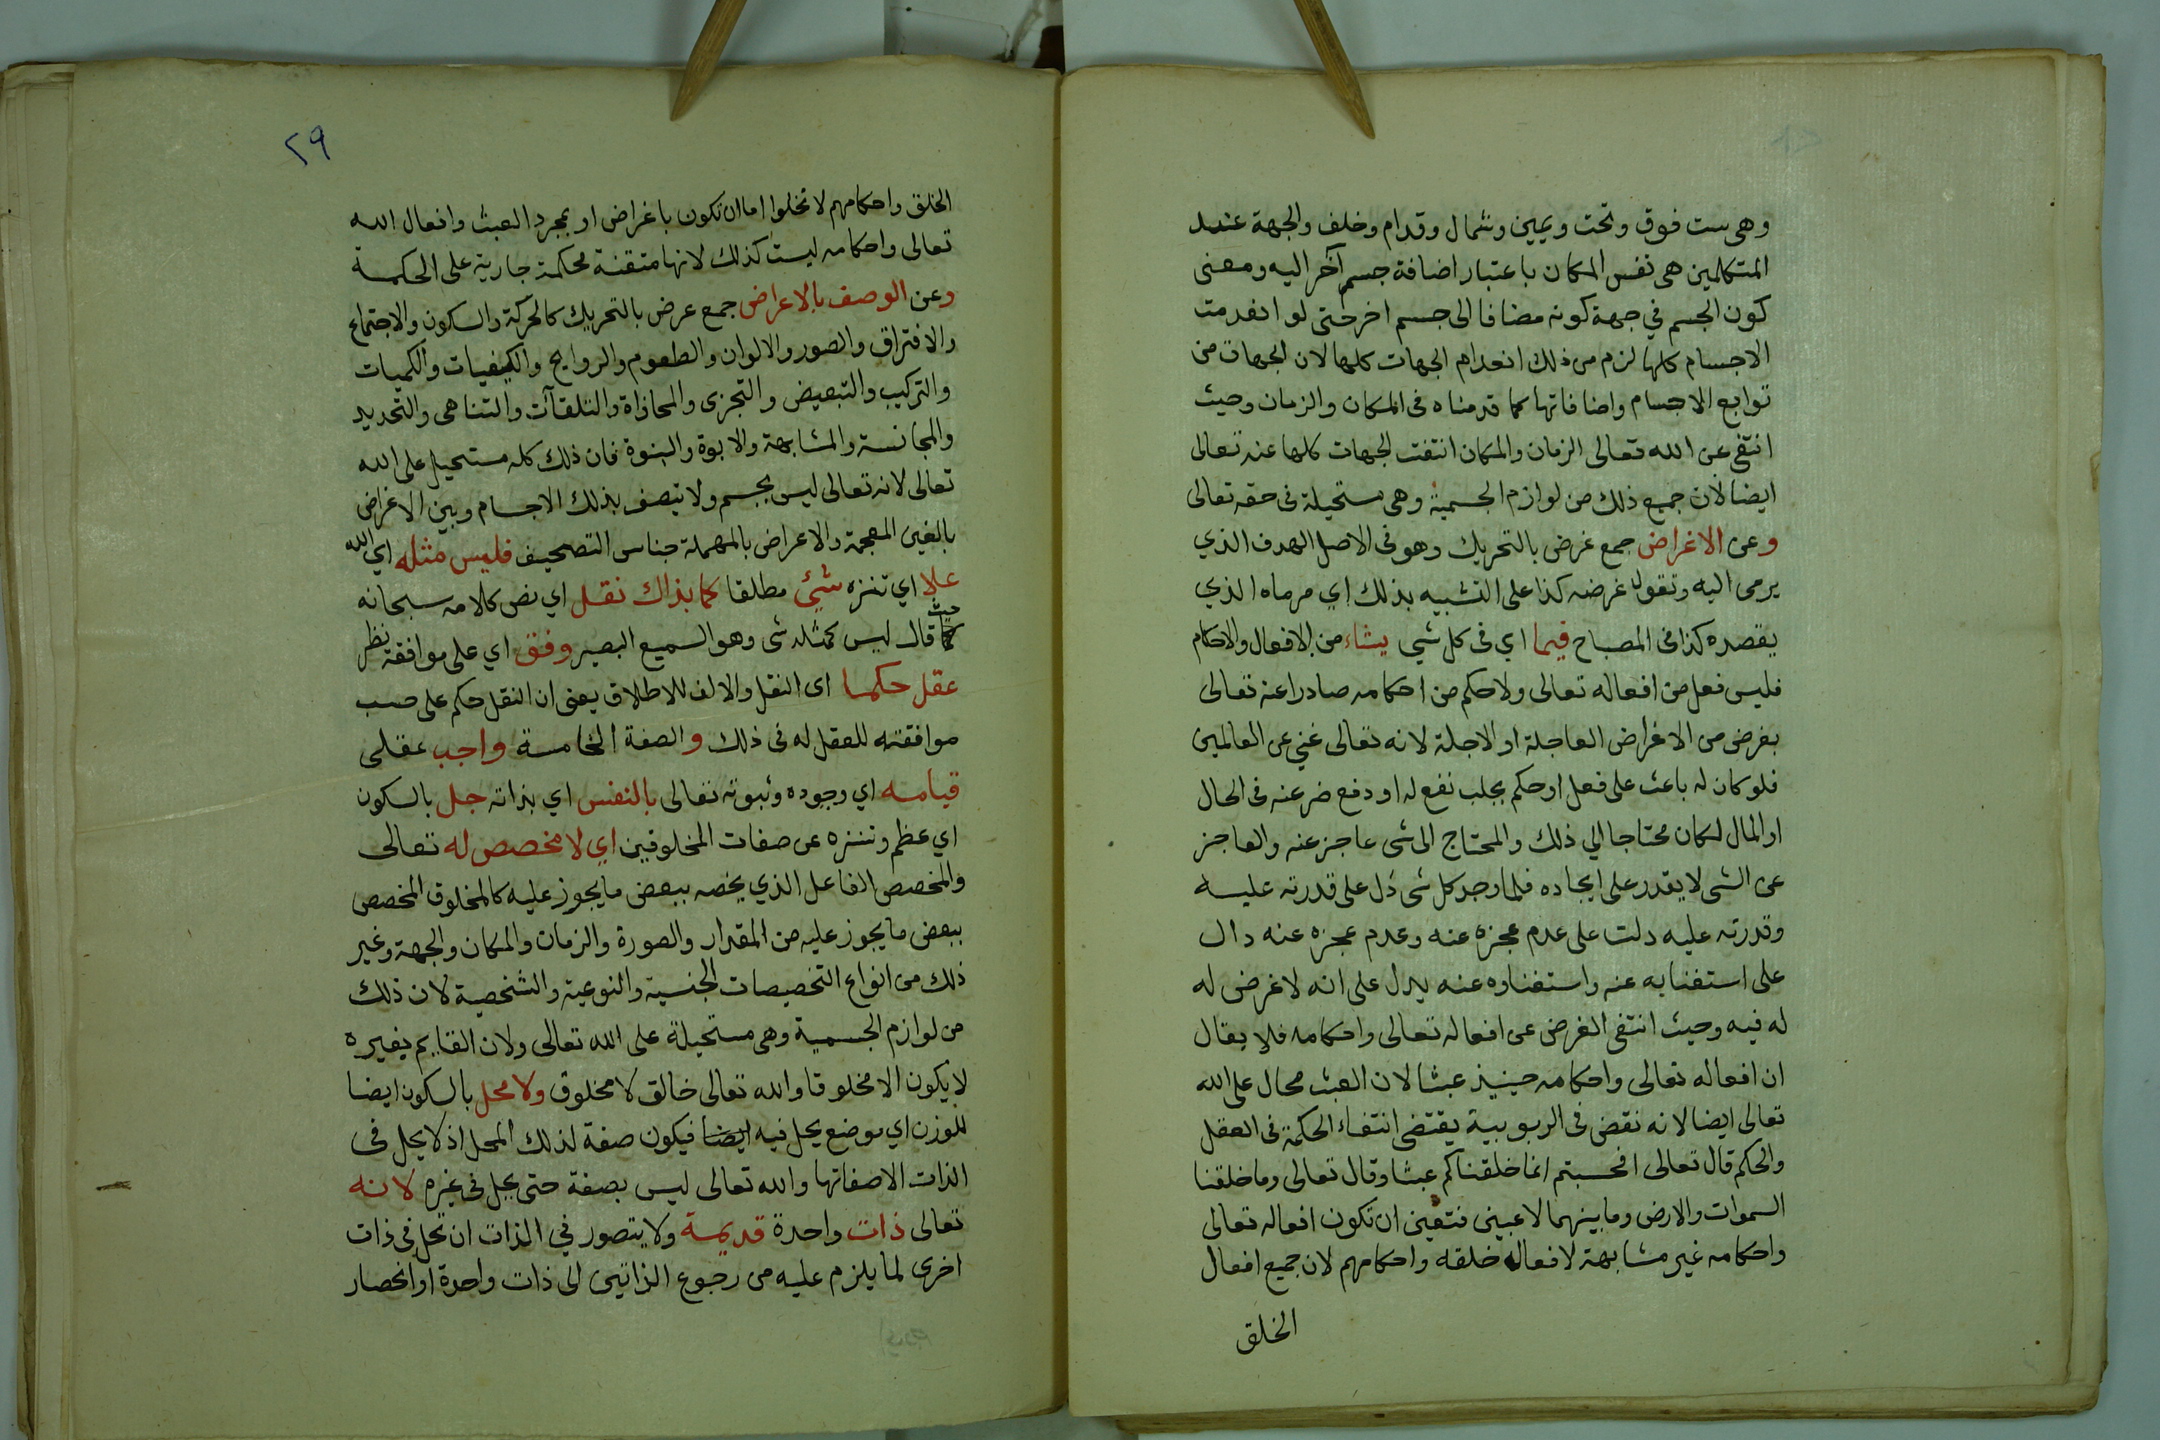 وهي ست فوق وتحت ويمين وشمال وقدام وخلف والجهة عند
المتكلمين هي نفس المكان باعتبار اضافة جسم آخر اليه ومعنى
كون الجسم في جهة كونه مضافا الى جسم اخر حتى لو انعدمت
الاجسام كلها لزم من ذلك انعدام الجهات كلها لان الجهات من
توابع الاجسام واضافاتها كما قدمناه في المكان والزمان وحيث
انتفى عن الله تعالى الزمان والمكان انتفت الجهات كلها عنه تعالى
ايضا لان جميع ذلك من لوازم الجسمية وهي مستحيلة في حقه تعالى
وعن الاغراض جمع غرض بالتحريك وهو في الاصل الهدف الذي
يرمى اليه وتقول غرضه كذا على التشبيه بذلك اي مرماه الذي
يقصده كذا في المصباح فيما اي في كل شيء يشاء من الافعال والاحكام
فليس فعل من افعاله تعالى ولا حكم من احكامه صادرا عنه تعالى
بغرض من الاغراض العاجلة او الاجلة لانه تعالى غني عن العالمين
فلو كان له باعث على فعل او حكم بجلب نفع له او دفع ضر عنه في الحال
او المال لكان محتاجا الي ذلك والمحتاج الى شي عاجز عنه والعاجز
عن الشي لا يقدر على ايجاده فلما وجد كل شي دل على قدرته عليه
وقدرته عليه دلت على عدم عجزه عنه وعدم عجزه عنه دال
على استغنايه عنه واستغناوه عنه يدل على انه لا غرض له
له فيه وحيث انتفى الغرض عن افعاله تعالى واحكامه فلا يقال
ان افعاله تعالى واحكامه حينيذ عبثا لان العبث محال على الله
تعالى ايضا لانه نقض في الربوبية يقتضي انتفاء الحكمة في العقل
والحكم قال تعالى افحسبتم انما خلقناكم عبثا وقال تعالى وما خلقنا
السموات والارض وما بينهما لاعبين فتعين ان تكون افعاله تعالى
واحكامه غير مشابهة لافعاله خلقه واحكامهم لان جميع افعال
الخلق
٢٩
الخلق واحكامهم لا تخلوا اما ان تكون باغراض او بمجرد العبث وافعال الله
تعالى واحكامه ليست كذلك لانها متقنة محكمة جارية على الحكمة
وعن الوصف بالاعراض جمع عرض بالتحريك كالحركة والسكون والاجتماع
والافتراق والصور والالوان والطعوم والروايح والكيفيات والكميات
والتركيب والتبعيض والتجزى والمحاذاة والتلقآت والتناهى والتحديد
والمجانسة والمشابهة والابوة والبنوة فان ذلك كله مستحيل على الله
تعالى لانه تعالى ليس بجسم ولا يتصف بذلك الاجسام وبين الاغراض
بالغين المعجمة والاعراض بالمهملة جناس التصحيف فليس مثله اي الله
علا اي تنزه شيئ مطلقا كما بذاك نقل اي نص كلامه سبحانه
حيث قال ليس كمثله شى وهو السميع البصير وفق اي على موافقة نظر
عقل حكما اى النقل والالف للاطلاق يعنى ان النقل حكم على حسب
موافقته للعقل له في ذلك والصفة الخامسة واجب عقلى
قيامه اي وجوده وثبوته تعالى بالنفس اي بذاته جل بالسكون
اي عظم وتنزه عن صفات المخلوقين اي لا مخصص له تعالى
والمخصص الفاعل الذي يخصه ببعض ما يجوز عليه كالمخلوق المخصص
ببعض ما يجوز عليه من المقدار والصورة والزمان والمكان والجهة وغير
ذلك من انواع التخصيصات الجنسية والنوعية والشخصية لان ذلك
من لوازم الجسمية وهي مستحيلة على الله تعالى ولان القايم بغيره
لا يكون الا مخلوقا والله تعالى خالق لا مخلوق ولا محل بالسكون ايضا
للوزن اي موضع يحل فيه ايضا فيكون صفة لذلك المحل اذ لا يحل في
الذات الا صفاتها والله تعالى ليس بصفة حتى يحل في غيره لانه
تعالى ذات واحدة قديمة ولا يتصور في الذات ان تحل في ذات
اخرى لما يلزم عليه من رجوع الذاتين الى ذات واحدة او انحصار